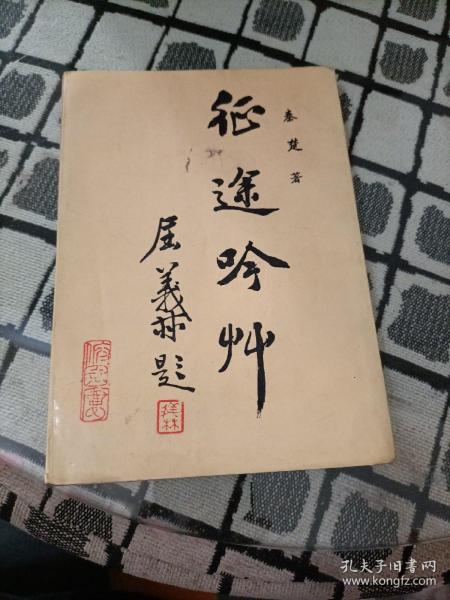 秦楚著
征途吟艸
屈義林題
義林
孔夫子旧书网
www.kongfz.com